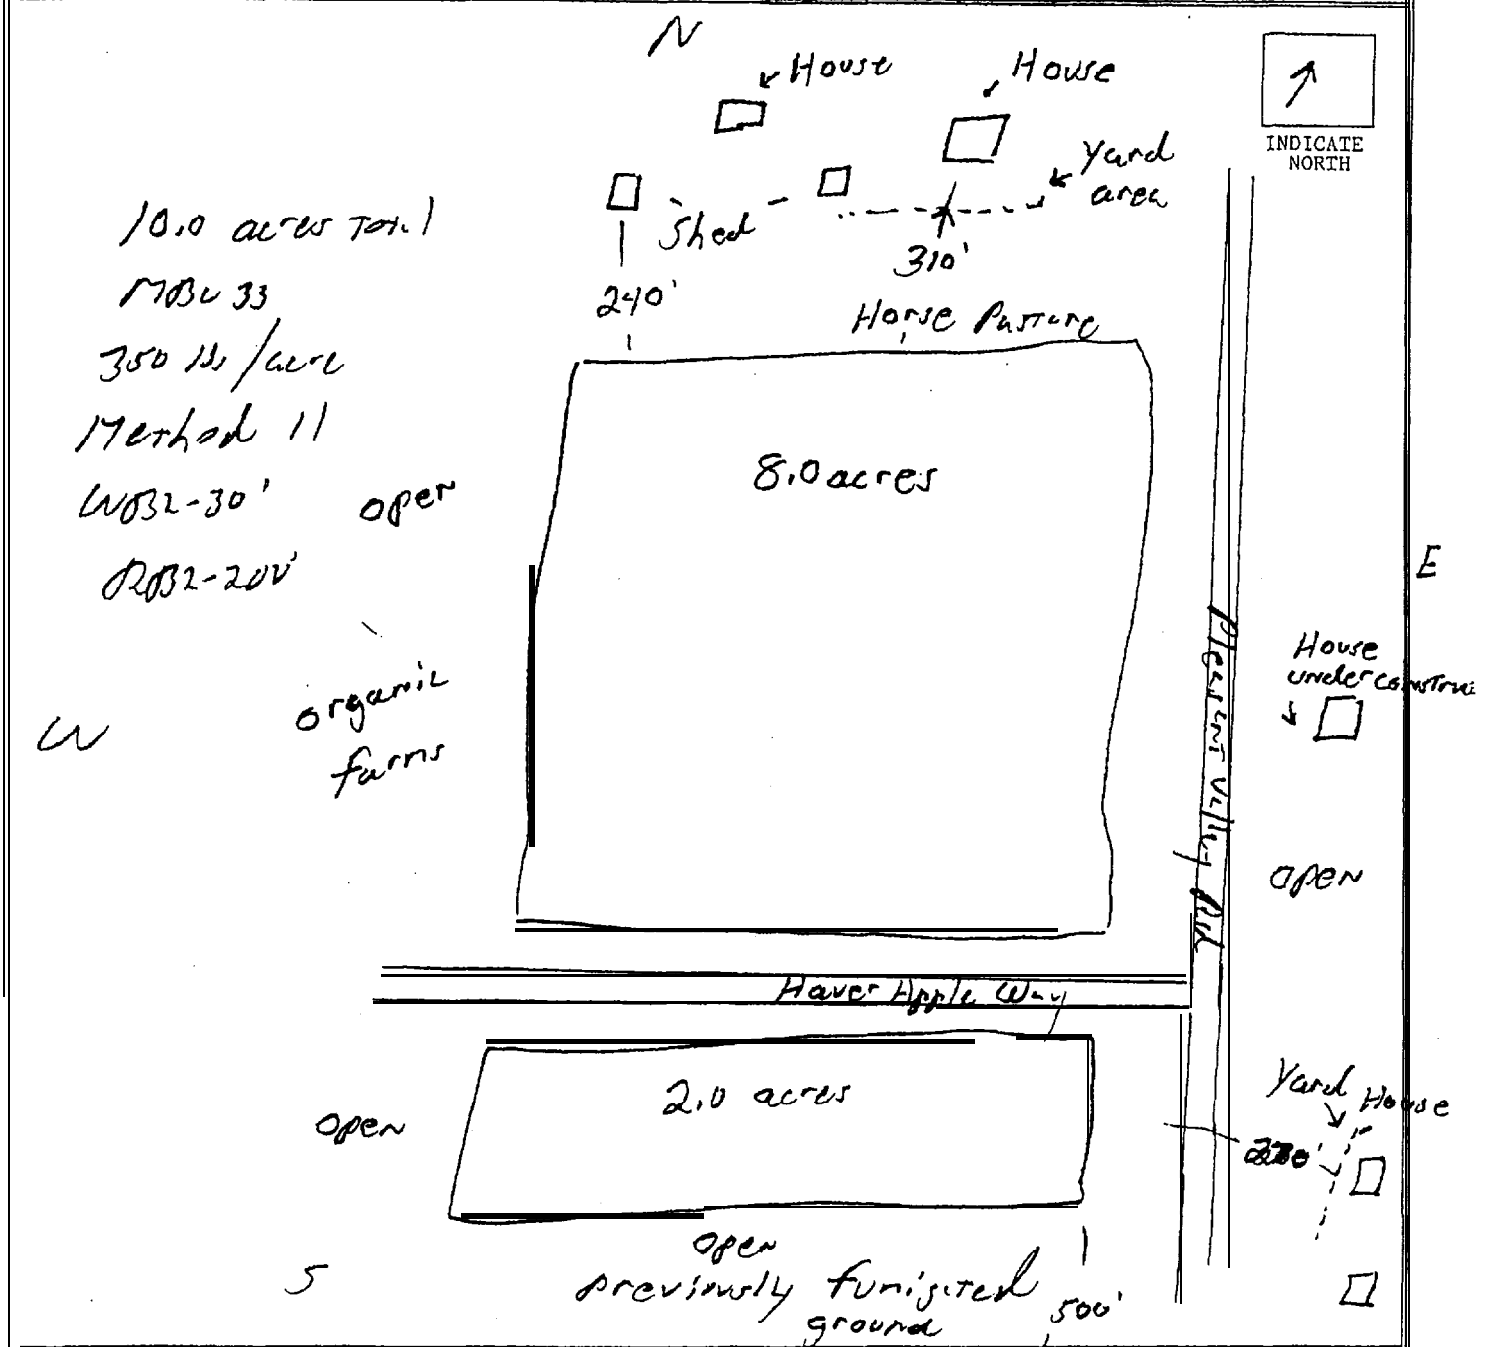 N
House
House
INDICATE
NORTH
Yard
area
Shed
310'
240'
Horse Pasture
10.0 acres Total
MBC 33
350 lbs/acre
Method 11
WBZ-30'
open
8.0 acres
E
organic
farms
W
House
under
Pleasant Valley Rd
open
Apple Way
2.0 acres
open
Yard House
open
previously fumigated
ground
500'
S